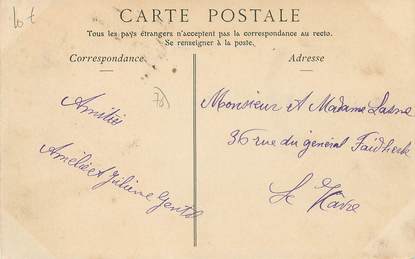 CARTE POSTALE
Tous les pays étrangers n'acceptent pas la correspondance au recto.
Se renseigner à la poste.
Correspondance.
Adresse
Amitiés
Amélie et Juliène Gentil
Monsieur et Madame Lasne
36 rue du général Faidherbe
Le Havre
78